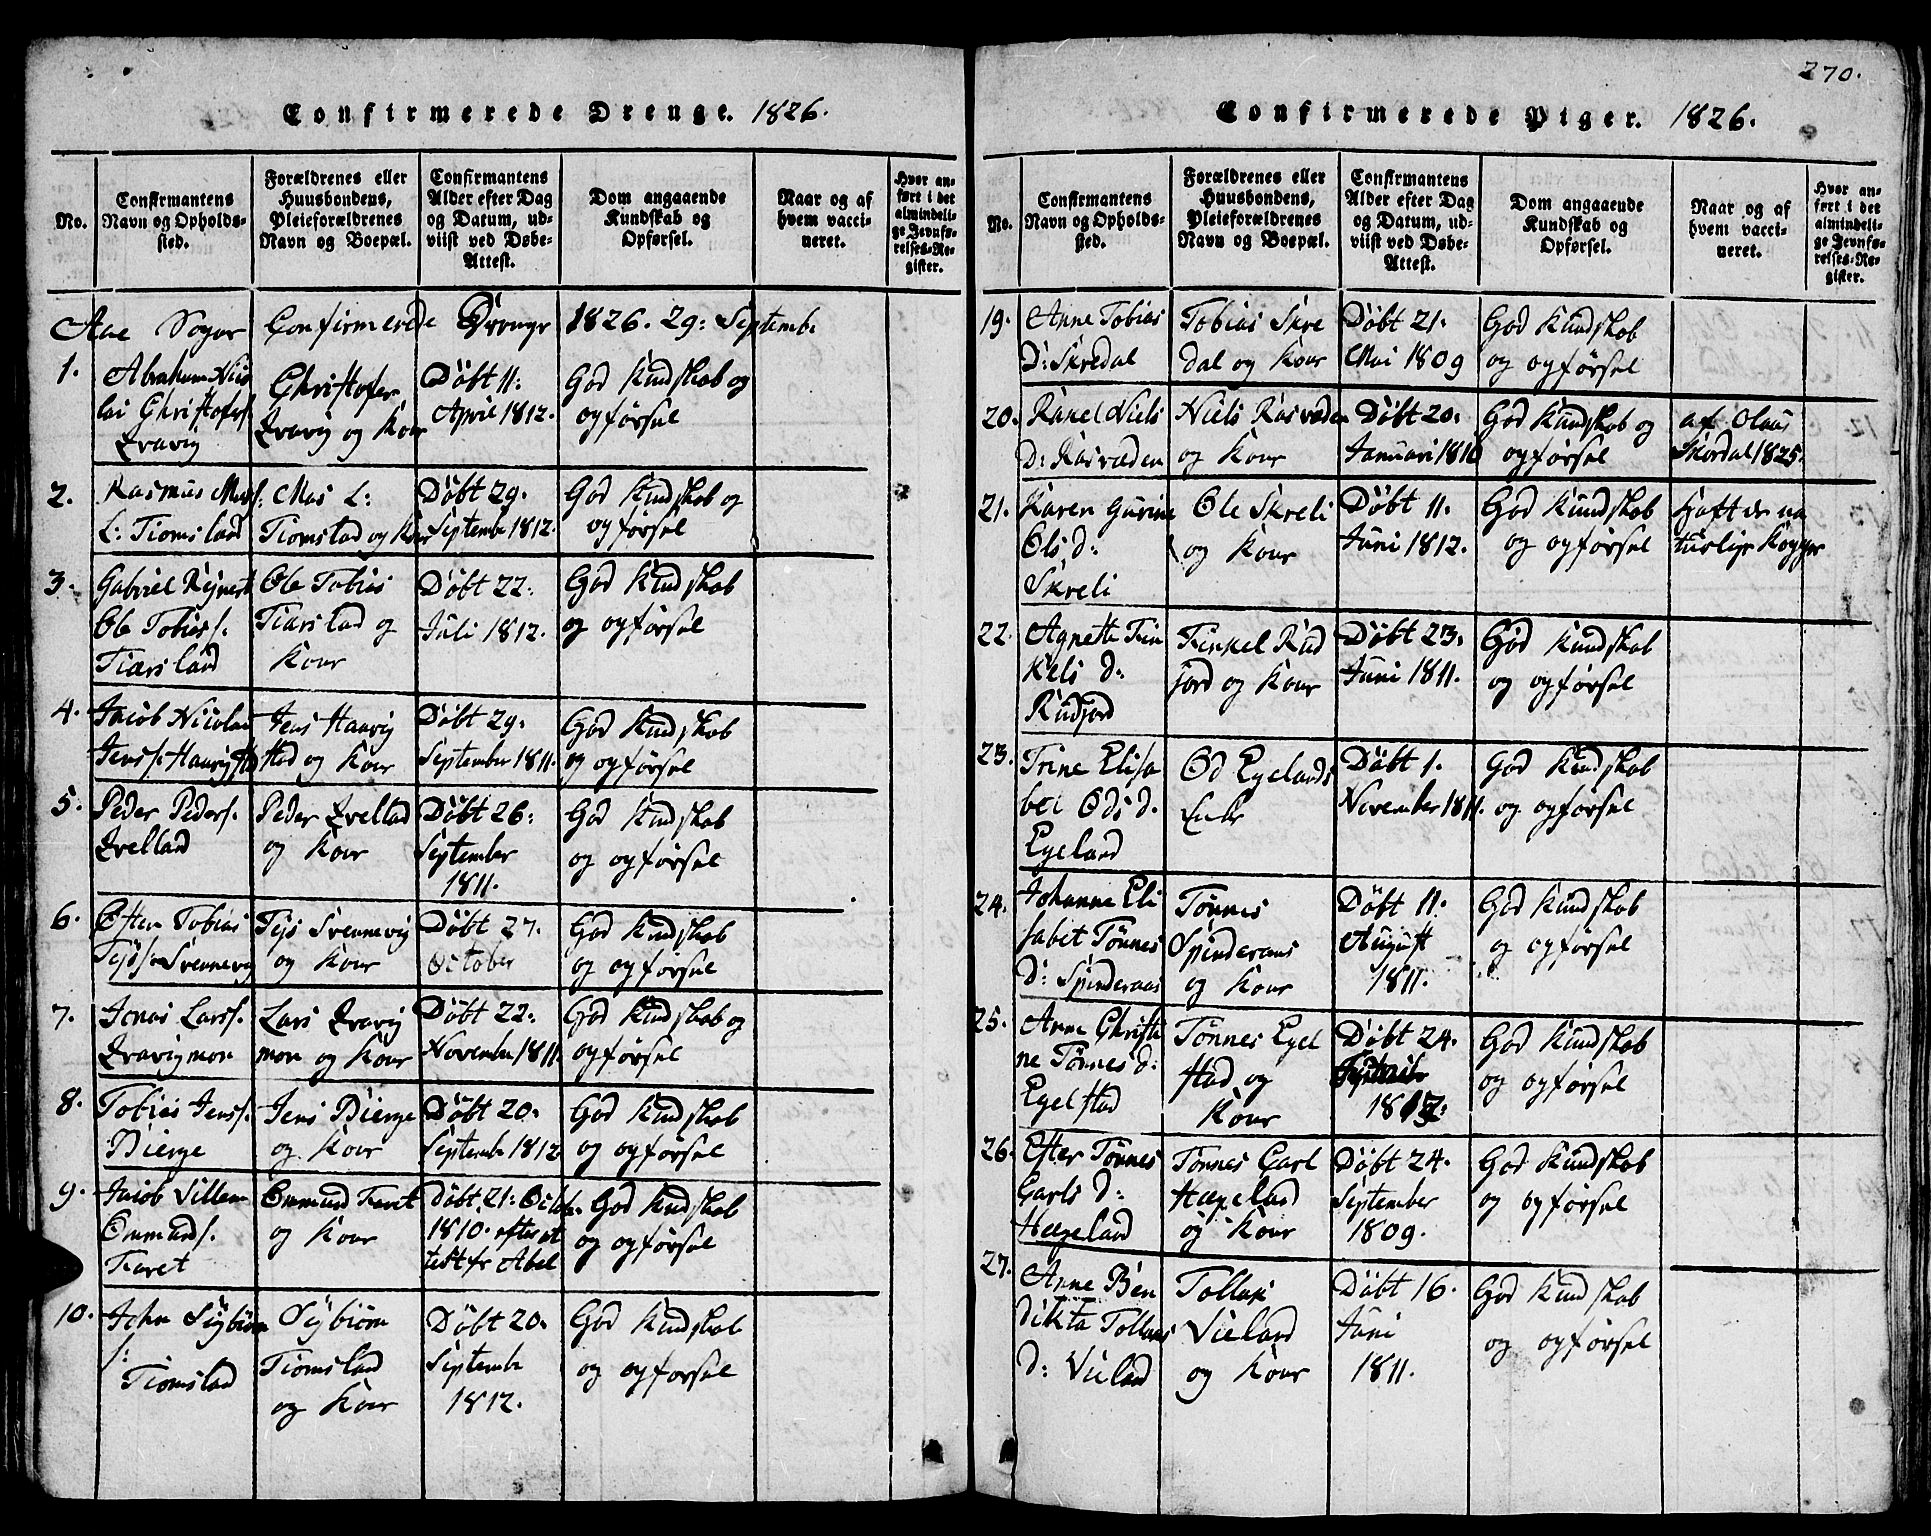 Confirmerede Drenge. 1826.
No.
Confirmantens Navn og Opholdssted.
Forældrenes eller Huusbondens, Pleieforældrenes Navn og Boepæl.
Confirmantens Alder efter Dag og Datum, udviist ved Døbe-Attest.
Dom angaaende Kundskab og Opførsel.
Naar og af hvem vaccineret.
Hvor anført i det almindelige Jevnførelses-Register.
Aae Sogns Confirmerede Drenge 1826. 29: Septembr
1. Abraham Nico
lai Christofers.
Qvavig
Christofer
Qvavig og Kone
Døbt 11:
April 1812.
God Kundskab og
opførsel
2. Rasmus Mos/:
L: Tiomsland
Mos L:
Tiomstad og Kone
Døbt 29.
September 1812.
God Kundskab og
opførsel
3. Gabriel Reinert
Ole Tobias/.
Tiærsland
Ole Tobias
Tiærsland og
Kone
Døbt 22:
Juli 1812.
God Kundskab
og opførsel
4. Jacob Nicolai
Jens/: Haavigstd
Jens Haavig
stad og Kone
Døbt 29.
September 1811.
God Kundskab
og opførsel
5. Peder Peders/.
Qvelland
Peder Qvelland
og Kone
Døbt 26:
September
1811.
God Kundskab
og opførsel
6. Osten Tobias
Tøs/: Svennevig
Tøs Svennevig
og Kone
Døbt 27.
October
God Kundskab
og opførsel
7. Jonas Lars/.
Qvavigmon
Lars Qvavig
mon og Kone
Døbt 22:
November 1811
God Kundskab og
opførsel
8. Tobias Jens/.
Bierge
Jens Bierge
og Kone
Døbt 20:
September 1812
God Kundskab
og opførsel
9. Jacob Villem
Ommund/.
Faret
Ommund Faret
og Kone
Døbt 21: Octob.
1810. efter at
test fr Abel
God Kundskab
og opførsel
10. John Sigbiørn
/:
Tiomstad
Sigbiørn
Tiomsland
og Kone
Døbt 20.
Septembr
1812.
God Kundskab
og opførsel
270.
Confirmerede Piger. 1826.
No.
Confirmantens Navn og Opholdssted.
Forældrenes eller Huusbondens, Pleieforældrenes Navn og Boepæl.
Confirmantens Alder efter Dag og Datum, udviist ved Døbe-Attest.
Dom angaaende Kundskab og Opførsel.
Naar og af hvem vaccineret.
Hvor anført i det almindelige Jevnførelses-Register.
19. Anne Tobias
D: Skredal
Tobias Skre
dal og Kone
Døbt 21.
Mai 1809
God Kundskab
og opførsel
20. Rakel Niels
D: Rosvæden
Niels Rosvæden
og Kone
Døbt 20.
Januari 1810
God Kundskab og
opførsel
af Olaus
Skordal 1825.
21. Karen Gurine
Ols d:
Skreli
Ole Skreli
og Kone
Døbt 11.
Juni 1812.
God Kundskab
og opførsel
Haft de na
turlige Kopper
22. Agnethe Trin
Kels d:
Rudjord
Terkel Rud
jord og Kone
Døbt 23.
Juni 1811.
God Kundskab
og opførsel
23. Trine Elisa
bet Ods d.
Egeland
Od Egelands
Enke
Døbt 1.
November 1811.
God Kundskab
og opførsel
24. Johanne Eli
sabet Tønnes
D: Spinderaas
Tønnes
Spinderaas
og Kone
Døbt 11.
August
1811.
God Kundskab
og opførsel
25. Anne Christi
ne Tønnes d:
Egelstad
Tønnes Egel
stad og
Kone
Døbt 24.
1812:
God Kundskab
og opførsel
26. Ester Tønnes
Carls d:
Hægeland
Tønnes Carl
Hægeland
og Kone
Døbt 24.
September
1809.
God Kundskab
og opførsel
27. Anne Ben
dikta Tollaks
d: Vieland
Tollak
Vieland
og Kone
Døbt 16.
Juni
1811.
God Kundskab
og opførsel